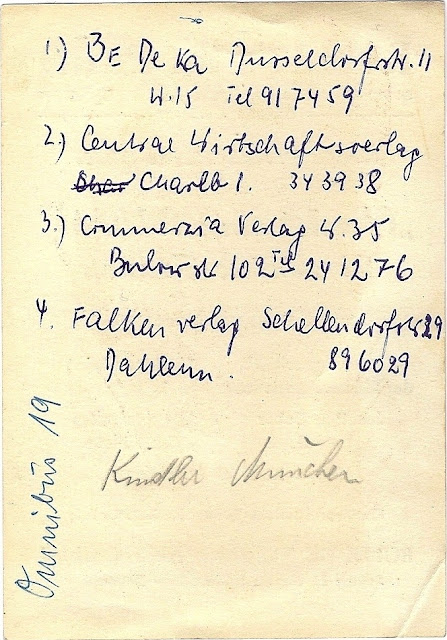 1.) BE De Ka Dusseldorfstr. 11
W. 15 Tel 91 74 59
2.) Central Wirtschaftsverlag
Charlb 1. 34 39 38
3.) Commerzia Verlag W. 35
Bulowstr 102 Tel 24 12 76
4. Falken verlag Schellendorfstr 29
Dahlem. 89 60 29
Kindler München
Omnibus 19